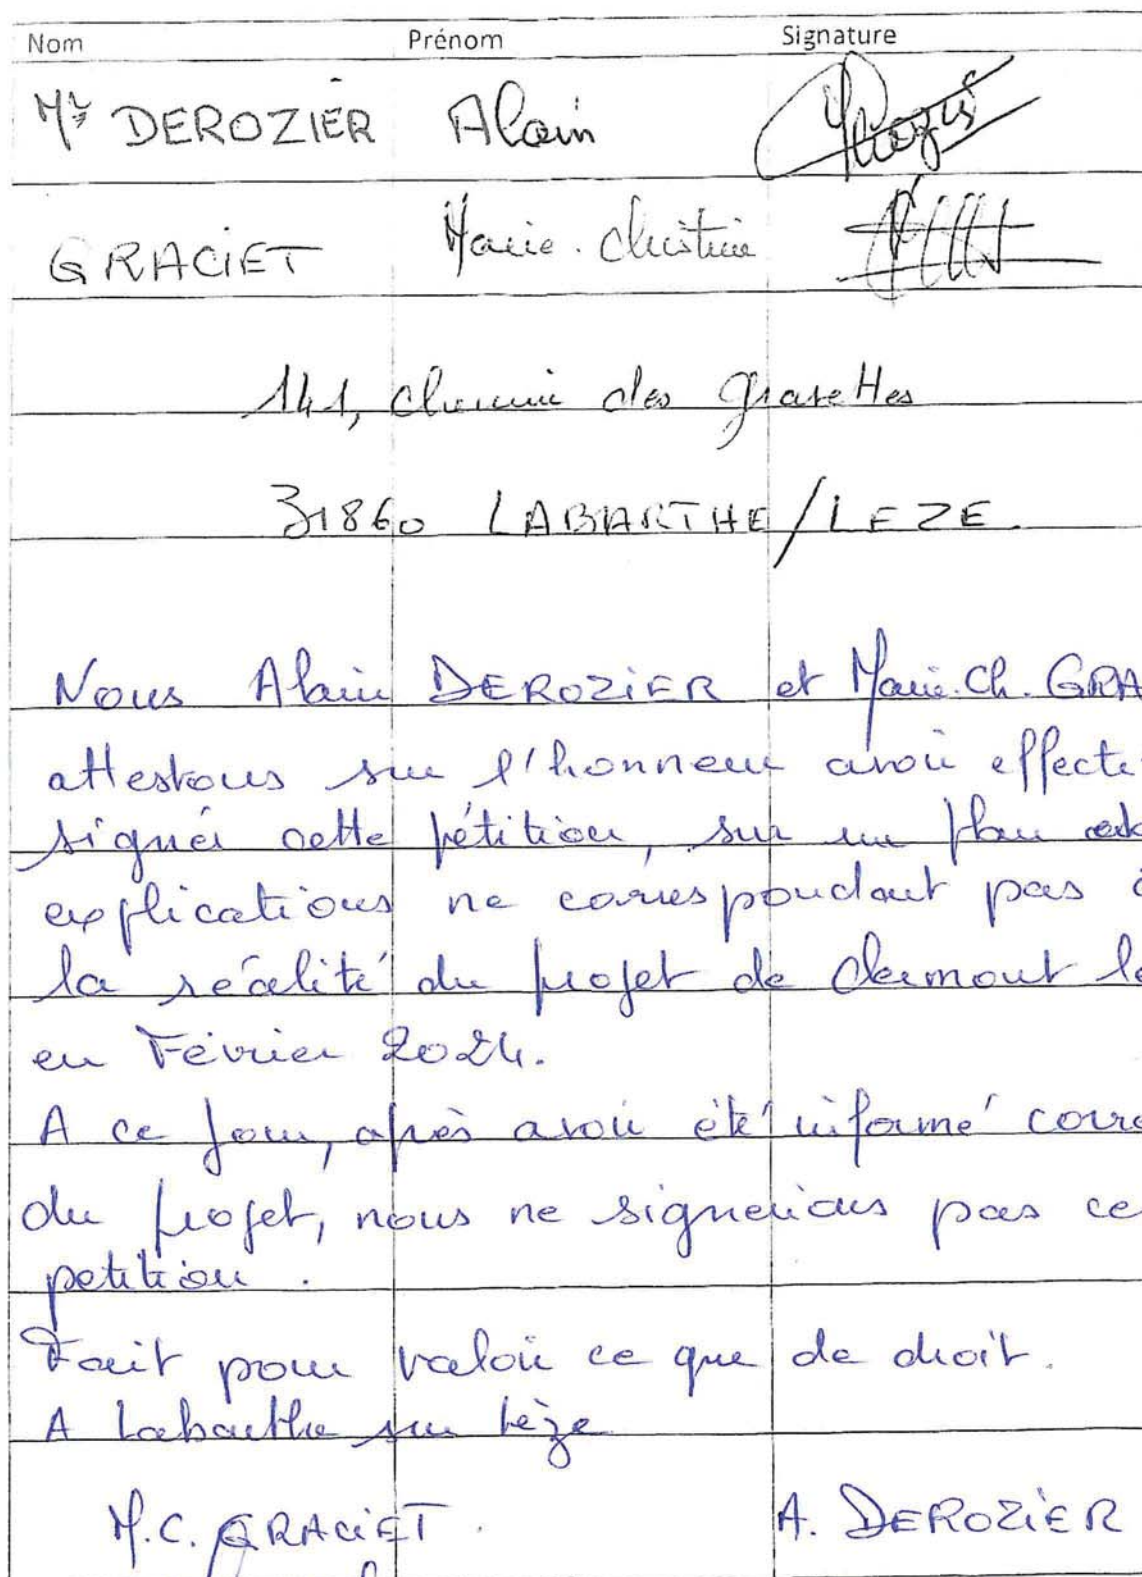 Nom Prénom Signature
Mr DEROZIER Alain
GRACIET Marie-Christine
141, chemin des gravettes
31860 LABARTHE/LEZE
Nous Alain DEROZIER et Marie.Ch. GRA
attestons sur l'honneur avoir effecti
signer cette pétition, sur un plan
explications ne correspondant pas à
la réalité du projet de Clermont le
en Février 2024.
A ce jour, après avoir été informé corre
du projet, nous ne signerions pas ce
petition.
Fait pour valoir ce que de droit.
A Labarthe sur Lèze
M.C. GRACIET. A. DEROZIER